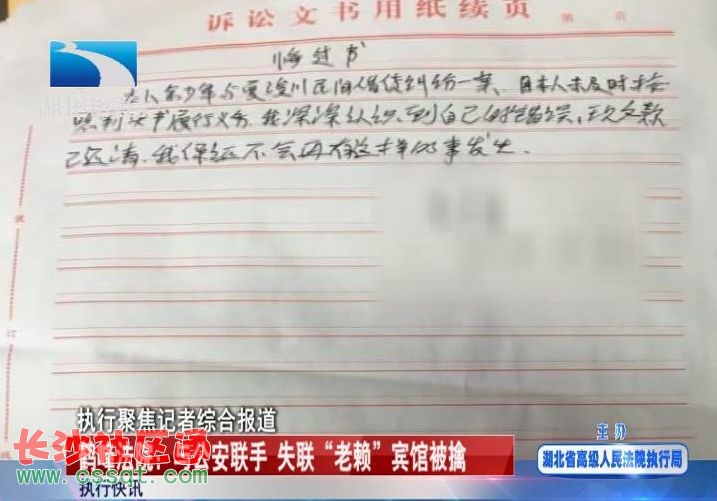 诉讼文书用纸续页
第 页
悔过书
民间借贷纠纷一案、因本人未及时按
照判决书履行义务,我深深认识到自己的错误,现欠款
已还清,我保证不会再有这样的事发生.
订
线
执行聚焦记者综合报道
公安联手 失联“老赖”宾馆被擒
执行快讯
长沙社区通
www.cssqt.com
主办
湖北省高级人民法院执行局